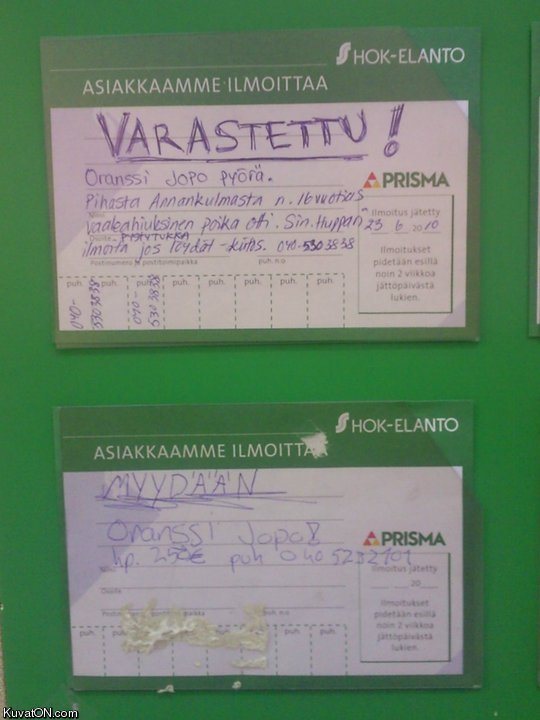 HOK-ELANTO
ASIAKKAAMME ILMOITTAA
VARASTETTU!
Oranssi JOPO pyörä.
PRISMA
Pihasta Annankulmasta n. 16 vuotias
Nimi
Ilmoitus jätetty
vaaleahiuksinen poika otti. Sin. Huppari
23 6 2010
Osoite
PYSTYTUKKA
ilmoita jos löydät -kiitos. 040-5303838
Postinumero ja postitoimipaikka puh. n:o
Ilmoitukset
pidetään esillä
noin 2 viikkoa
jättöpäivästä
lukien.
puh. puh. puh. puh. puh. puh. puh.
040-
5303838
040-
5303838
HOK-ELANTO
ASIAKKAAMME ILMOITTAA
MYYDÄÄN
Oranssi Jopo!
PRISMA
hp. 250€ puh 040 5232101
Nimi
Ilmoitus jätetty
20
Osoite
puh. n:o
Ilmoitukset
pidetään esillä
noin 2 viikkoa
jättöpäivästä
lukien.
puh. puh. puh. puh.
KuvatON.com